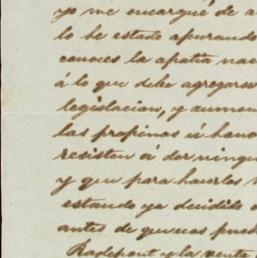 yo me encargué de a
lo he estado apurando
conoces la apatia nac
á lo que debe agregarse
legislacion, y aumen
las propinas ú hono
resisten á dar ningu
y que para hacerles
estando ya decidido
antes de que nos pued
y la venta